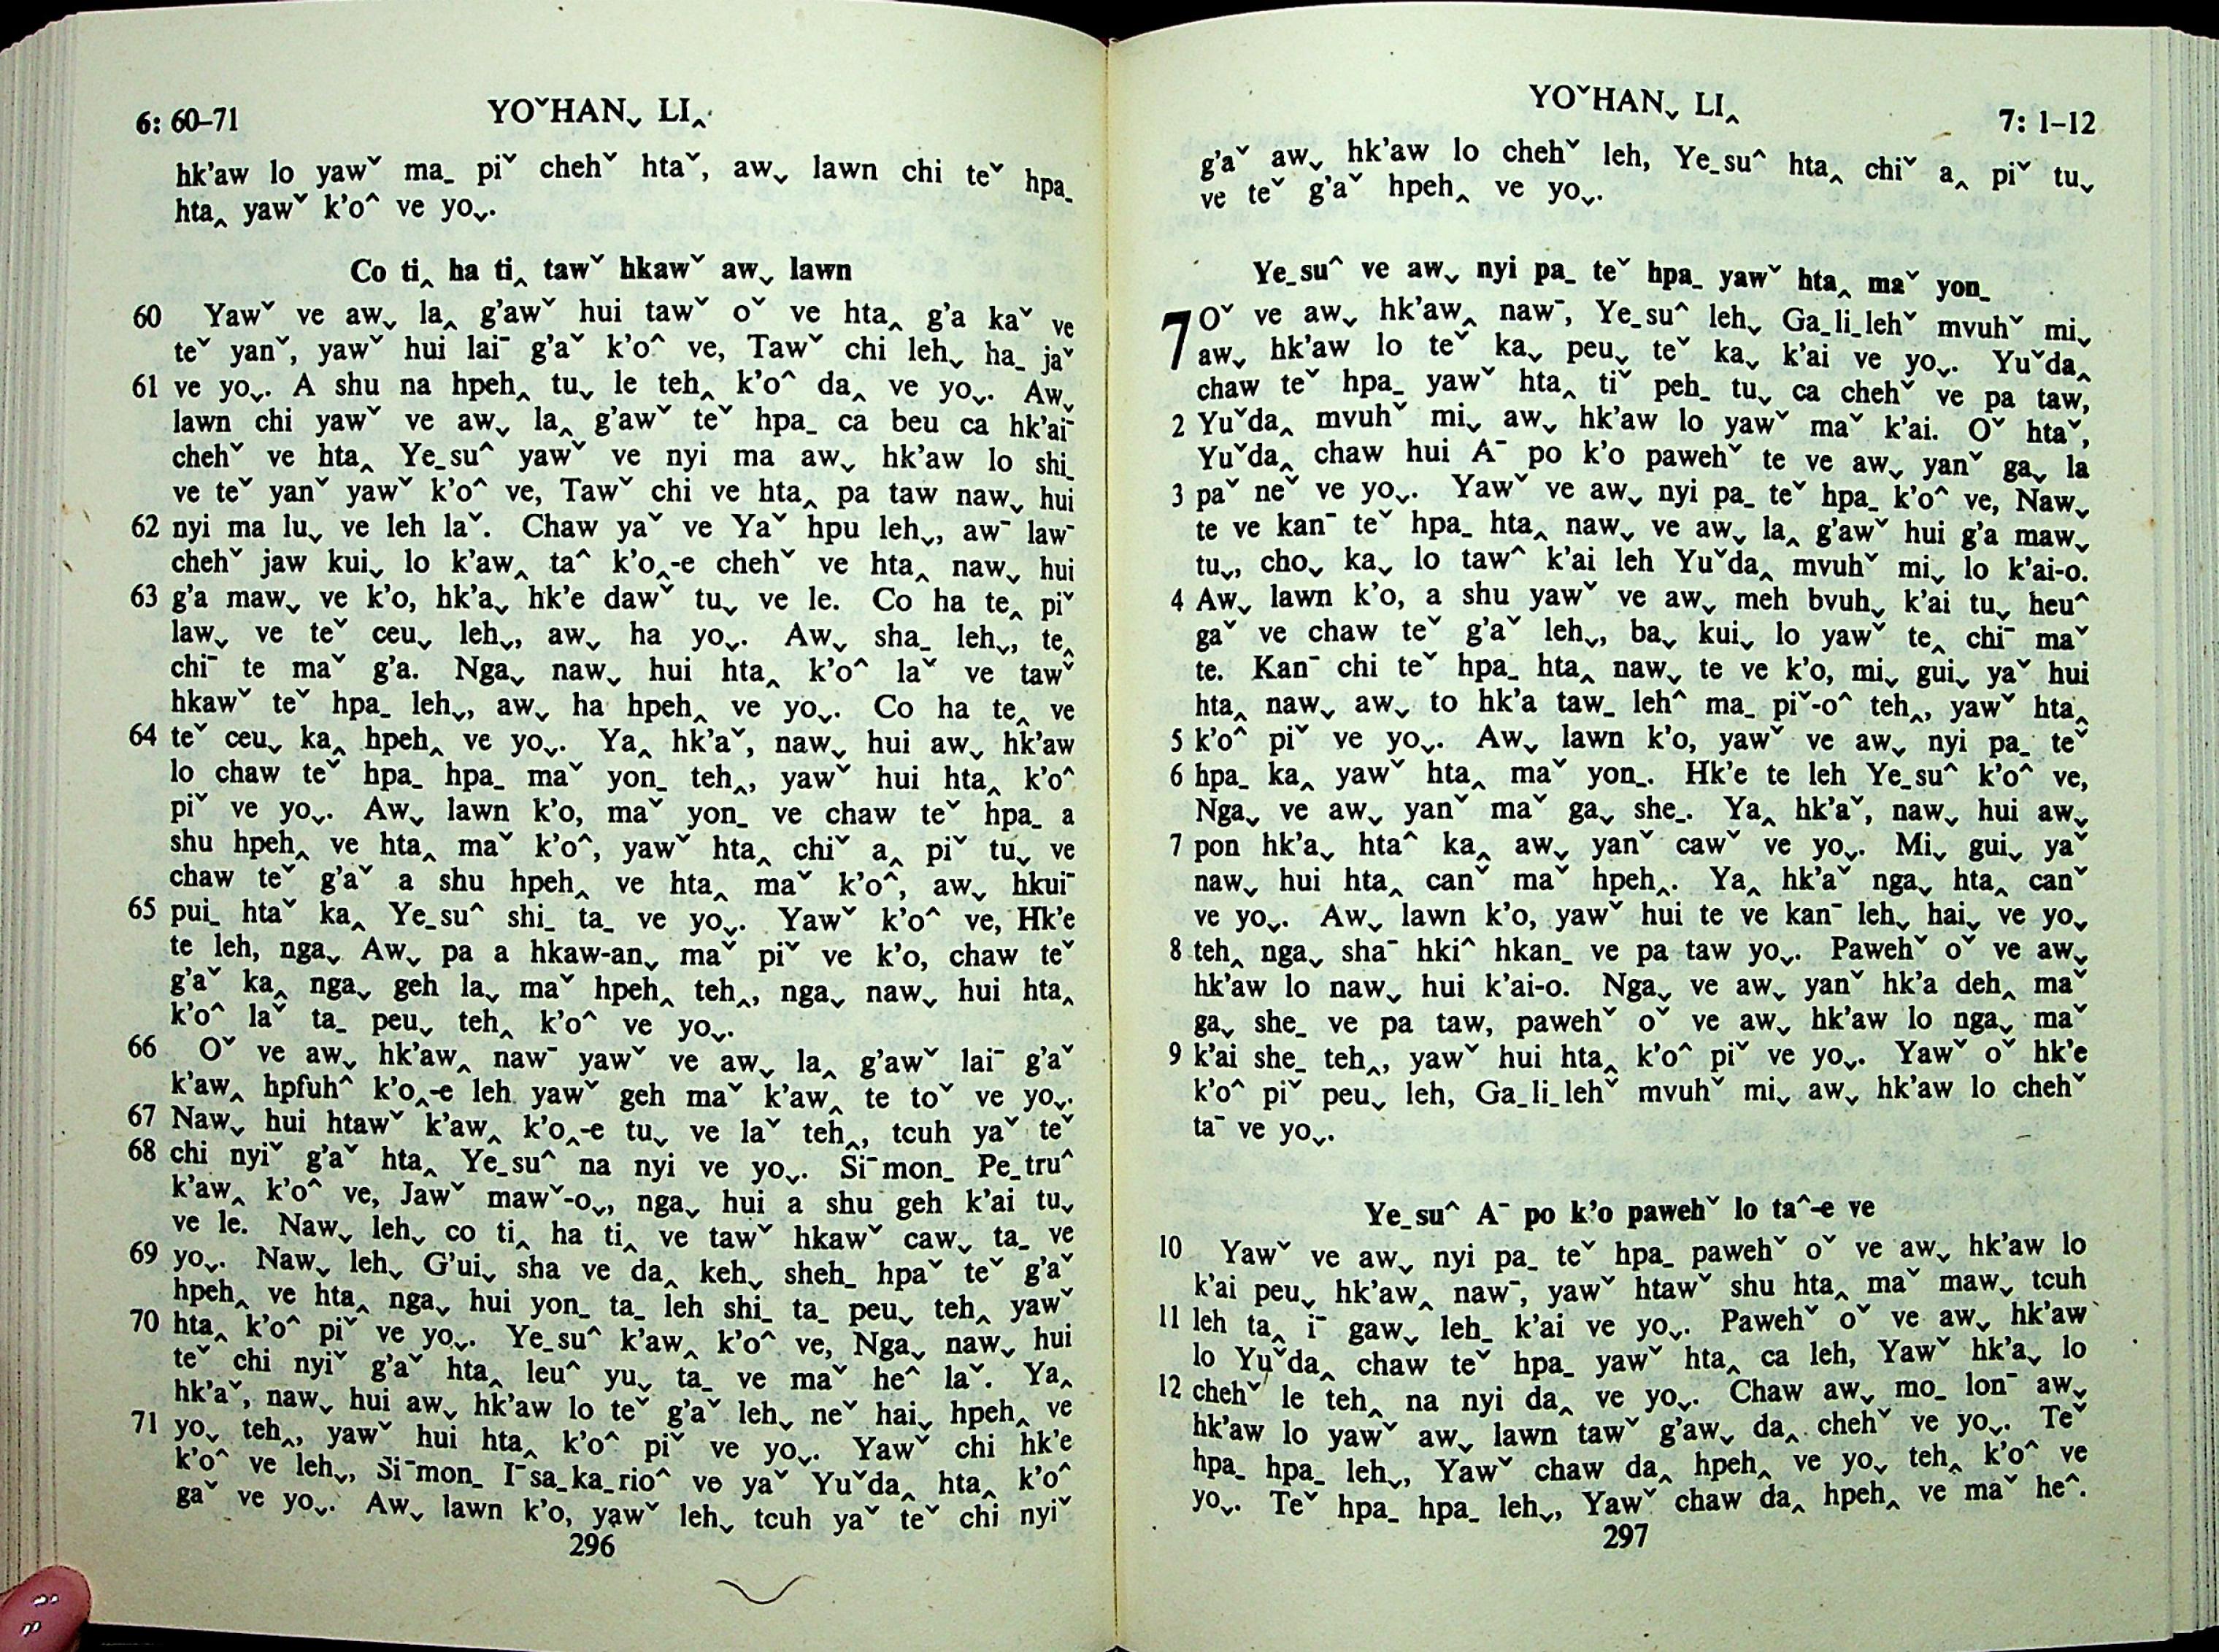 6: 60–71
YOˇHANˬ LI‸
hk'aw lo yawˇ ma_ piˇ chehˇ htaˇ, awˬ lawn chi teˇ hpa_
hta‸ yawˇ k'o^ ve yoˬ.
Co ti‸ ha ti‸ tawˇ hkawˇ awˬ lawn
60 Yawˇ ve awˬ la‸ g'awˇ hui tawˇ oˇ ve hta‸ g'a kaˇ ve
teˇ yanˇ, yawˇ hui laiˉ g'aˇ k'o^ ve, Tawˇ chi lehˬ ha_ jaˇ
61 ve yoˬ. A shu na hpeh‸ tuˬ le teh‸ k'o^ da‸ ve yoˬ. Awˬ
lawn chi yawˇ ve awˬ la‸ g'awˇ teˇ hpa_ ca beu ca hk'aiˉ
chehˇ ve hta‸ Ye_su^ yawˇ ve nyi ma awˬ hk'aw lo shi_
ve teˇ yanˇ yawˇ k'o^ ve, Tawˇ chi ve hta‸ pa taw nawˬ hui
62 nyi ma luˬ ve leh laˇ. Chaw yaˇ ve Yaˇ hpu lehˬ, awˉ lawˉ
chehˇ jaw kuiˬ lo k'aw‸ ta^ k'o‸-e chehˇ ve hta‸ nawˬ hui
63 g'a mawˬ ve k'o, hk'aˬ hk'e dawˇ tuˬ ve le. Co ha te‸ piˇ
lawˬ ve teˇ ceuˬ lehˬ, awˬ ha yoˬ. Awˬ sha_ lehˬ, te‸
chiˉ te maˇ g'a. Ngaˬ nawˬ hui hta‸ k'o^ laˇ ve tawˇ
hkawˇ teˇ hpa_ lehˬ, awˬ ha hpeh‸ ve yoˬ. Co ha te‸ ve
64 teˇ ceuˬ ka‸ hpeh‸ ve yoˬ. Ya‸ hk'aˇ, nawˬ hui awˬ hk'aw
lo chaw teˇ hpa_ hpa_ maˇ yon_ teh‸, yawˇ hui hta‸ k'o^
piˇ ve yoˬ. Awˬ lawn k'o, maˇ yon_ ve chaw teˇ hpa_ a
shu hpeh‸ ve hta‸ maˇ k'o^, yawˇ hta‸ chiˇ a‸ piˇ tuˬ ve
chaw teˇ g'aˇ a shu hpeh‸ ve hta‸ maˇ k'o^, awˬ hkuiˉ
65 pui_ htaˇ ka‸ Ye_su^ shi_ ta_ ve yoˬ. Yawˇ k'o^ ve, Hk'e
te leh, ngaˬ Awˬ pa a hkaw-anˬ maˇ piˇ ve k'o, chaw teˇ
g'aˇ ka‸ ngaˬ geh laˬ maˇ hpeh‸ teh‸, ngaˬ nawˬ hui hta‸
k'o^ laˇ ta_ peuˬ teh‸ k'o^ ve yoˬ.
66 Oˇ ve awˬ hk'aw‸ nawˉ yawˇ ve awˬ la‸ g'awˇ laiˉ g'aˇ
k'aw‸ hpfuh^ k'o‸-e leh yawˇ geh maˇ k'aw‸ te toˇ ve yoˬ.
67 Nawˬ hui htawˇ k'aw‸ k'o‸-e tuˬ ve laˇ teh‸, tcuh yaˇ teˇ
68 chi nyiˇ g'aˇ hta‸ Ye_su^ na nyi ve yoˬ. Siˉmon_ Pe_tru^
k'aw‸ k'o^ ve, Jawˇ mawˇ-oˬ, ngaˬ hui a shu geh k'ai tuˬ
ve le. Nawˬ lehˬ co ti‸ ha ti‸ ve tawˇ hkawˇ cawˬ ta_ ve
69 yoˬ. Nawˬ lehˬ G'uiˬ sha ve da‸ kehˬ sheh_ hpaˇ teˇ g'aˇ
hpeh‸ ve hta‸ ngaˬ hui yon_ ta_ leh shi_ ta_ peuˬ teh‸ yawˇ
70 hta‸ k'o^ piˇ ve yoˬ. Ye_su^ k'aw‸ k'o^ ve, Ngaˬ nawˬ hui
teˇ chi nyiˇ g'aˇ hta‸ leu^ yuˬ ta_ ve maˇ he^ laˇ. Ya‸
hk'aˇ, nawˬ hui awˬ hk'aw lo teˇ g'aˇ lehˬ neˇ haiˬ hpeh‸ ve
71 yoˬ teh‸, yawˇ hui hta‸ k'o^ piˇ ve yoˬ. Yawˇ chi hk'e
k'o^ ve lehˬ, Siˉmon_ Iˉsa_ka_rio^ ve yaˇ Yuˇda‸ hta‸ k'o^
gaˇ ve yoˬ. Awˬ lawn k'o, yawˇ lehˬ tcuh yaˇ teˇ chi nyiˇ
296
YOˇHANˬ LI‸
7: 1–12
g'aˇ awˬ hk'aw lo chehˇ leh, Ye_su^ hta‸ chiˇ a‸ piˇ tuˬ
ve teˇ g'aˇ hpeh‸ ve yoˬ.
Ye_su^ ve awˬ nyi pa_ teˇ hpa_ yawˇ hta‸ maˇ yon_
7 Oˇ ve awˬ hk'aw‸ nawˉ, Ye_su^ lehˬ Ga_li_lehˇ mvuhˇ miˬ
awˬ hk'aw lo teˇ kaˬ peuˬ teˇ kaˬ k'ai ve yoˬ. Yuˇda‸
chaw teˇ hpa_ yawˇ hta‸ tiˇ peh_ tuˬ ca chehˇ ve pa taw,
2 Yuˇda‸ mvuhˇ miˬ awˬ hk'aw lo yawˇ maˇ k'ai. Oˇ htaˇ,
Yuˇda‸ chaw hui Aˉ po k'o pawehˇ te ve awˬ yanˇ gaˬ la
3 paˇ neˇ ve yoˬ. Yawˇ ve awˬ nyi pa_ teˇ hpa_ k'o^ ve, Nawˬ
te ve kanˉ teˇ hpa_ hta‸ nawˬ ve awˬ la‸ g'awˇ hui g'a mawˬ
tuˬ, choˬ kaˬ lo taw^ k'ai leh Yuˇda‸ mvuhˇ miˬ lo k'ai-o.
4 Awˬ lawn k'o, a shu yawˇ ve awˬ meh bvuhˬ k'ai tuˬ heu^
gaˇ ve chaw teˇ g'aˇ lehˬ, baˬ kuiˬ lo yawˇ te‸ chiˉ maˇ
te. Kanˉ chi teˇ hpa_ hta‸ nawˬ te ve k'o, miˬ guiˬ yaˇ hui
hta‸ nawˬ awˬ to hk'a taw_ leh^ ma_ piˇ-o^ teh‸, yawˇ hta‸
5 k'o^ piˇ ve yoˬ. Awˬ lawn k'o, yawˇ ve awˬ nyi pa_ teˇ
6 hpa_ ka‸ yawˇ hta‸ maˇ yon_. Hk'e te leh Ye_su^ k'o^ ve,
Ngaˬ ve awˬ yanˇ maˇ gaˬ she_. Ya‸ hk'aˇ, nawˬ hui awˬ
7 pon hk'aˬ hta^ ka‸ awˬ yanˇ cawˇ ve yoˬ. Miˬ guiˬ yaˇ
nawˬ hui hta‸ canˇ maˇ hpeh‸. Ya‸ hk'aˇ ngaˬ hta‸ canˇ
ve yoˬ. Awˬ lawn k'o, yawˇ hui te ve kanˉ lehˬ haiˬ ve yoˬ
8 teh‸ ngaˬ shaˉ hki^ hkan_ ve pa taw yoˬ. Pawehˇ oˇ ve awˬ
hk'aw lo nawˬ hui k'ai-o. Ngaˬ ve awˬ yanˇ hk'a deh‸ maˇ
gaˬ she_ ve pa taw, pawehˇ oˇ ve awˬ hk'aw lo ngaˬ maˇ
9 k'ai she_ teh‸, yawˇ hui hta‸ k'o^ piˇ ve yoˬ. Yawˇ oˇ hk'e
k'o^ piˇ peuˬ leh, Ga_li_lehˇ mvuhˇ miˬ awˬ hk'aw lo chehˇ
taˉ ve yoˬ.
Ye_su^ Aˉ po k'o pawehˇ lo ta^-e ve
10 Yawˇ ve awˬ nyi pa_ teˇ hpa_ pawehˇ oˇ ve awˬ hk'aw lo
k'ai peuˬ hk'aw‸ nawˉ, yawˇ htawˇ shu hta‸ maˇ mawˬ tcuh
11 leh ta‸ iˉ gawˬ leh_ k'ai ve yoˬ. Pawehˇ oˇ ve awˬ hk'aw
lo Yuˇda‸ chaw teˇ hpa_ yawˇ hta‸ ca leh, Yawˇ hk'aˬ lo
12 chehˇ le teh‸ na nyi da‸ ve yoˬ. Chaw awˬ mo_ lonˉ awˬ
hk'aw lo yawˇ awˬ lawn tawˇ g'awˬ da‸ chehˇ ve yoˬ. Teˇ
hpa_ hpa_ lehˬ, Yawˇ chaw da‸ hpeh‸ ve yoˬ teh‸ k'o^ ve
yoˬ. Teˇ hpa_ hpa_ lehˬ, Yawˇ chaw da‸ hpeh‸ ve maˇ he^.
297